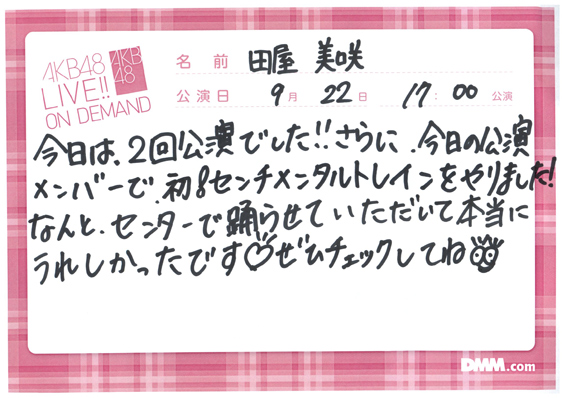 AKB48
LIVE!!
ON DEMAND
AKB
48
名前 田屋 美咲
公演日 9月 22日 17:00 公演
今日は、2回公演でした!!さらに、今日の公演
メンバーで、初!センチメンタルトレインをやりました!
なんと、センターで踊らせていただいて本当に
うれしかったです♡ぜひチェックしてね
DMM.com